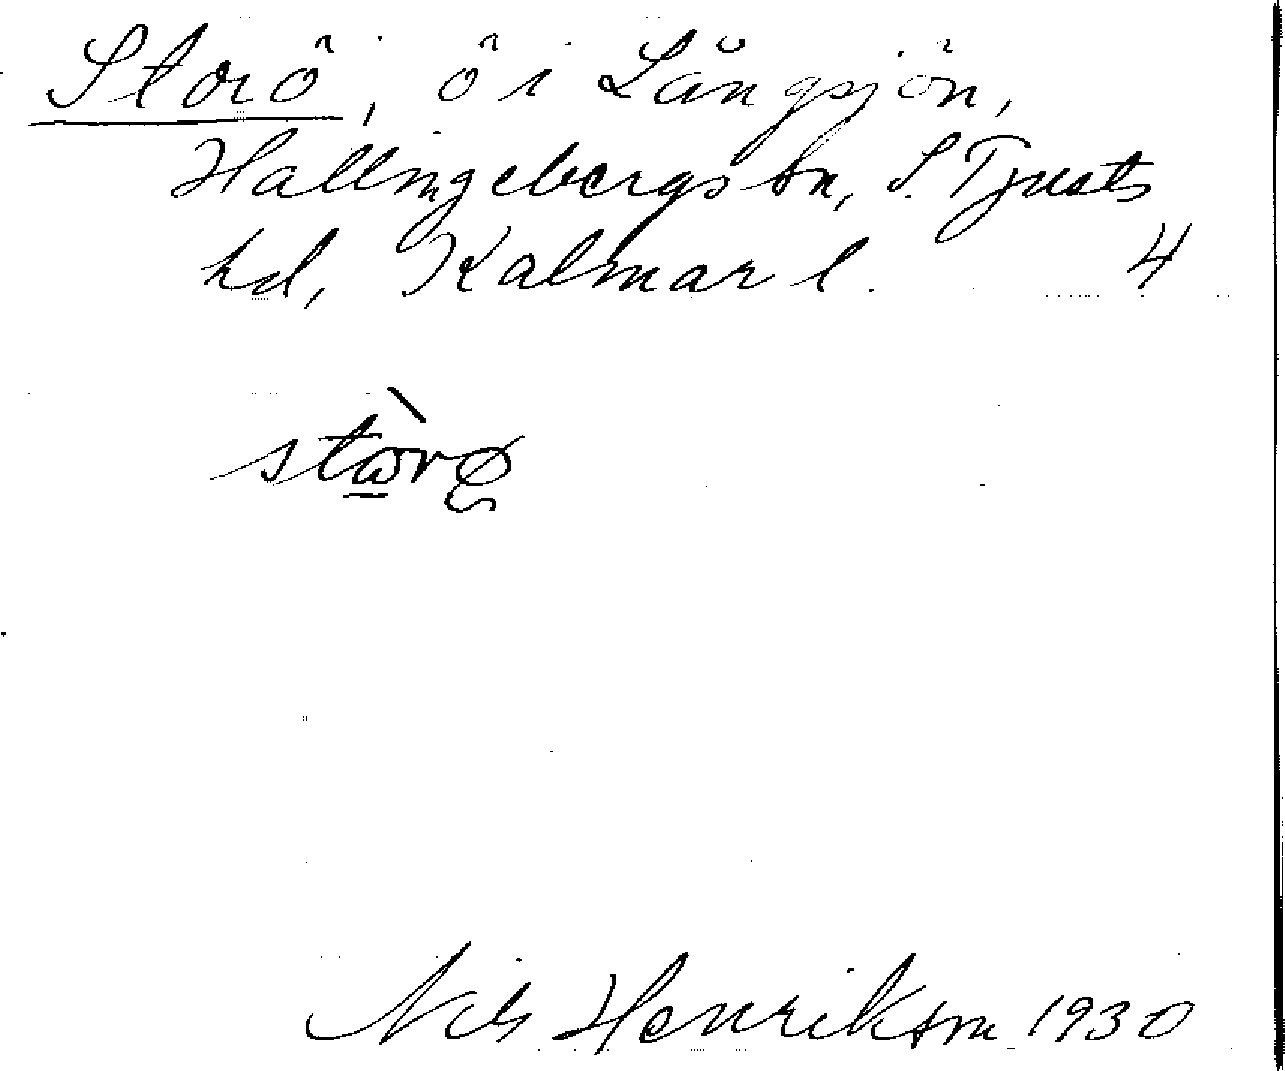 Storö, ö i Långsjön,
Hallingebergs sn, S. Tjusts
hd, Kalmar l. 4
stὼrø
Nils Henrikson 1930